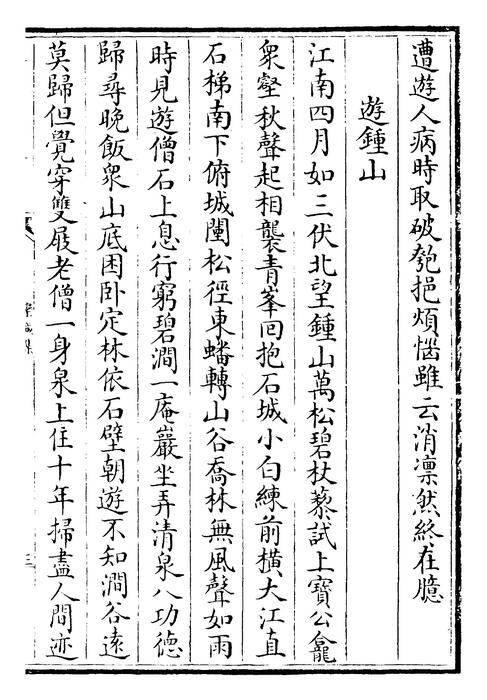 遭遊人病時取破匏挹煩惱雖云消凛然終在臆
遊鍾山
江南四月如三伏北望鍾山萬松碧杖藜試上寶公龕
衆壑秋聲起相襲青峯回抱石城小白練前横大江直
石梯南下俯城闉松徑東蟠轉山谷喬林無風聲如雨
時見遊僧石上息行窮碧澗一庵巖坐弄清泉八功德
歸尋晚飯衆山底困卧定林依石壁朝遊不知澗谷遠
莫歸但覺穿雙屐老僧一身泉上住十年掃盡人間迹